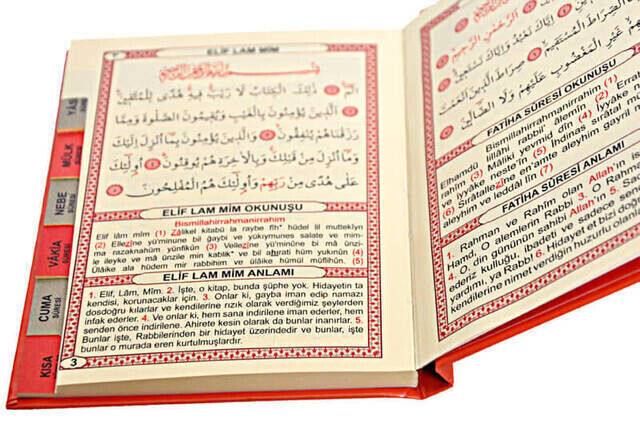 YÂS
SÛRESİ
MÜLK
SÛRESİ
NEBE
SÛRESİ
VÂKIA
SÛRESİ
CUMA
SÛRESİ
KISA
ELİF LAM MİM
بِسْمِ اللهِ الرَّحْمٰنِ الرَّحِيمِ
الٓمٓ ذٰلِكَ الْكِتَابُ لَا رَيْبَ فِيهِ هُدًى لِلْمُتَّقِينَ
اَلَّذِينَ يُؤْمِنُونَ بِالْغَيْبِ وَيُقِيمُونَ الصَّلٰوةَ وَمِمَّا
رَزَقْنَاهُمْ يُنْفِقُونَ وَالَّذِينَ يُؤْمِنُونَ بِمَا اُنْزِلَ اِلَيْكَ
وَمَا اُنْزِلَ مِنْ قَبْلِكَ وَبِالْاٰخِرَةِ هُمْ يُوقِنُونَ اُولٰئِكَ
عَلٰى هُدًى مِنْ رَبِّهِمْ وَاُولٰئِكَ هُمُ الْمُفْلِحُونَ
ELİF LAM MİM OKUNUŞU
Bismillahirrahmanirrahim
Elif lâm mîm (1) Zâlikel kitâbü la raybe fih* hüdel lil muttekîyn
(2) Ellezîne yü'minune bil ğaybi ve yükıymunes salate ve mim-
ma razaknahüm yunfikûn (3) Vellezîne yü'minûne bi mâ ünzi-
le ileyke ve mâ ünzile min kablik* ve bil ahırati hüm yukınûn (4)
Ülâike ala hüdem mir rabbihim ve ülâike hümül müflihûn. (5)
ELİF LAM MİM ANLAMI
1. Elif, Lâm, Mîm. 2. İşte, o kitap, bunda şüphe yok. Hidayetin ta
kendisi, korunacaklar için. 3. Onlar ki, gayba iman edip namazı
dosdoğru kılarlar ve kendilerine rizik olarak verdiğimiz şeylerden
infak ederler. 4. Ve onlar ki, hem sana indirilene iman ederler, hem
senden önce indirilene. Ahirete kesin olarak da bunlar inanırlar. 5.
Bunlar işte, Rabbilerinden bir hidayet üzerindedir ve bunlar, işte
bunlar o murada eren kurtulmuşlardır.
3
الرَّحْمٰنِ الرَّحِيمِ
اِيَّاكَ نَعْبُدُ وَاِيَّاكَ نَسْتَعِينُ
الصِّرَاطَ الْمُسْتَقِيمَ صِرَاطَ الَّذِينَ اَنْعَمْتَ
غَيْرِ الْمَغْضُوبِ عَلَيْهِمْ وَلَا الضَّالِّينَ
FATİHA SÛRESİ OKUNUŞU
Bismillahirrahmanirrahim (1)
Elhamdü lillâhi rabbil' âlemîn (2) Errahmânir
rahîm (3) Mâliki yevmid dîn (4) İyyâke
ve iyyâke neste'în (5) İhdinas sırâtal
(6) Sırâtallezîne en'amte aleyhim ğayril
aleyhim ve leddâl lîn (7)
FATİHA SÛRESİ ANLAMI
1. Rahman ve Rahîm olan Allah'ın
Hamd, O âlemlerin Rabbi 3. O
4. O din gününün sahibi Allah'ın 5. Sade
ederiz kulluğu, ibadeti ve sadece senden
yardımı, ya Rabb! 6. Hidayet et bizi doğru
kendilerine nimet verdiğin huzurlu